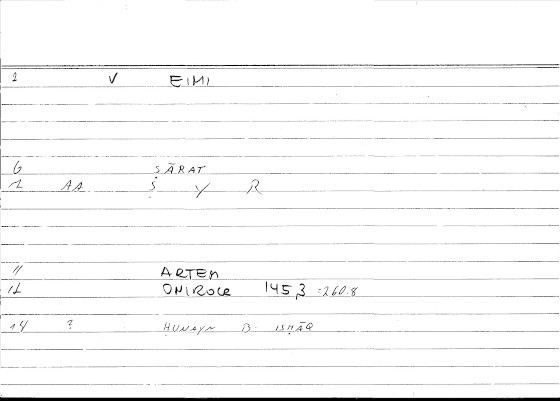 1 V EIMI
6 ṢĀRAT
1 AA Ṣ Y R
11 ARTEM
12 ONIROCR 145,3 =260.8
14 ? ḤUNAYN B. ISḤĀQ